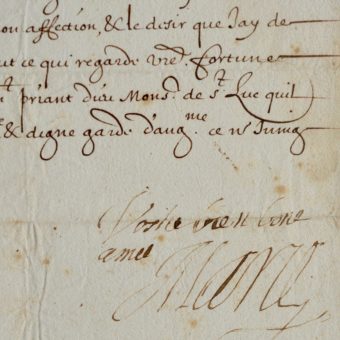 on affection, & le desir que Jay de
ut ce qui regarde vre. fortune
nt priant dieu Monsr. de st Luc quil
& digne garde d'aug.me ce
Vostre bien bon
amee